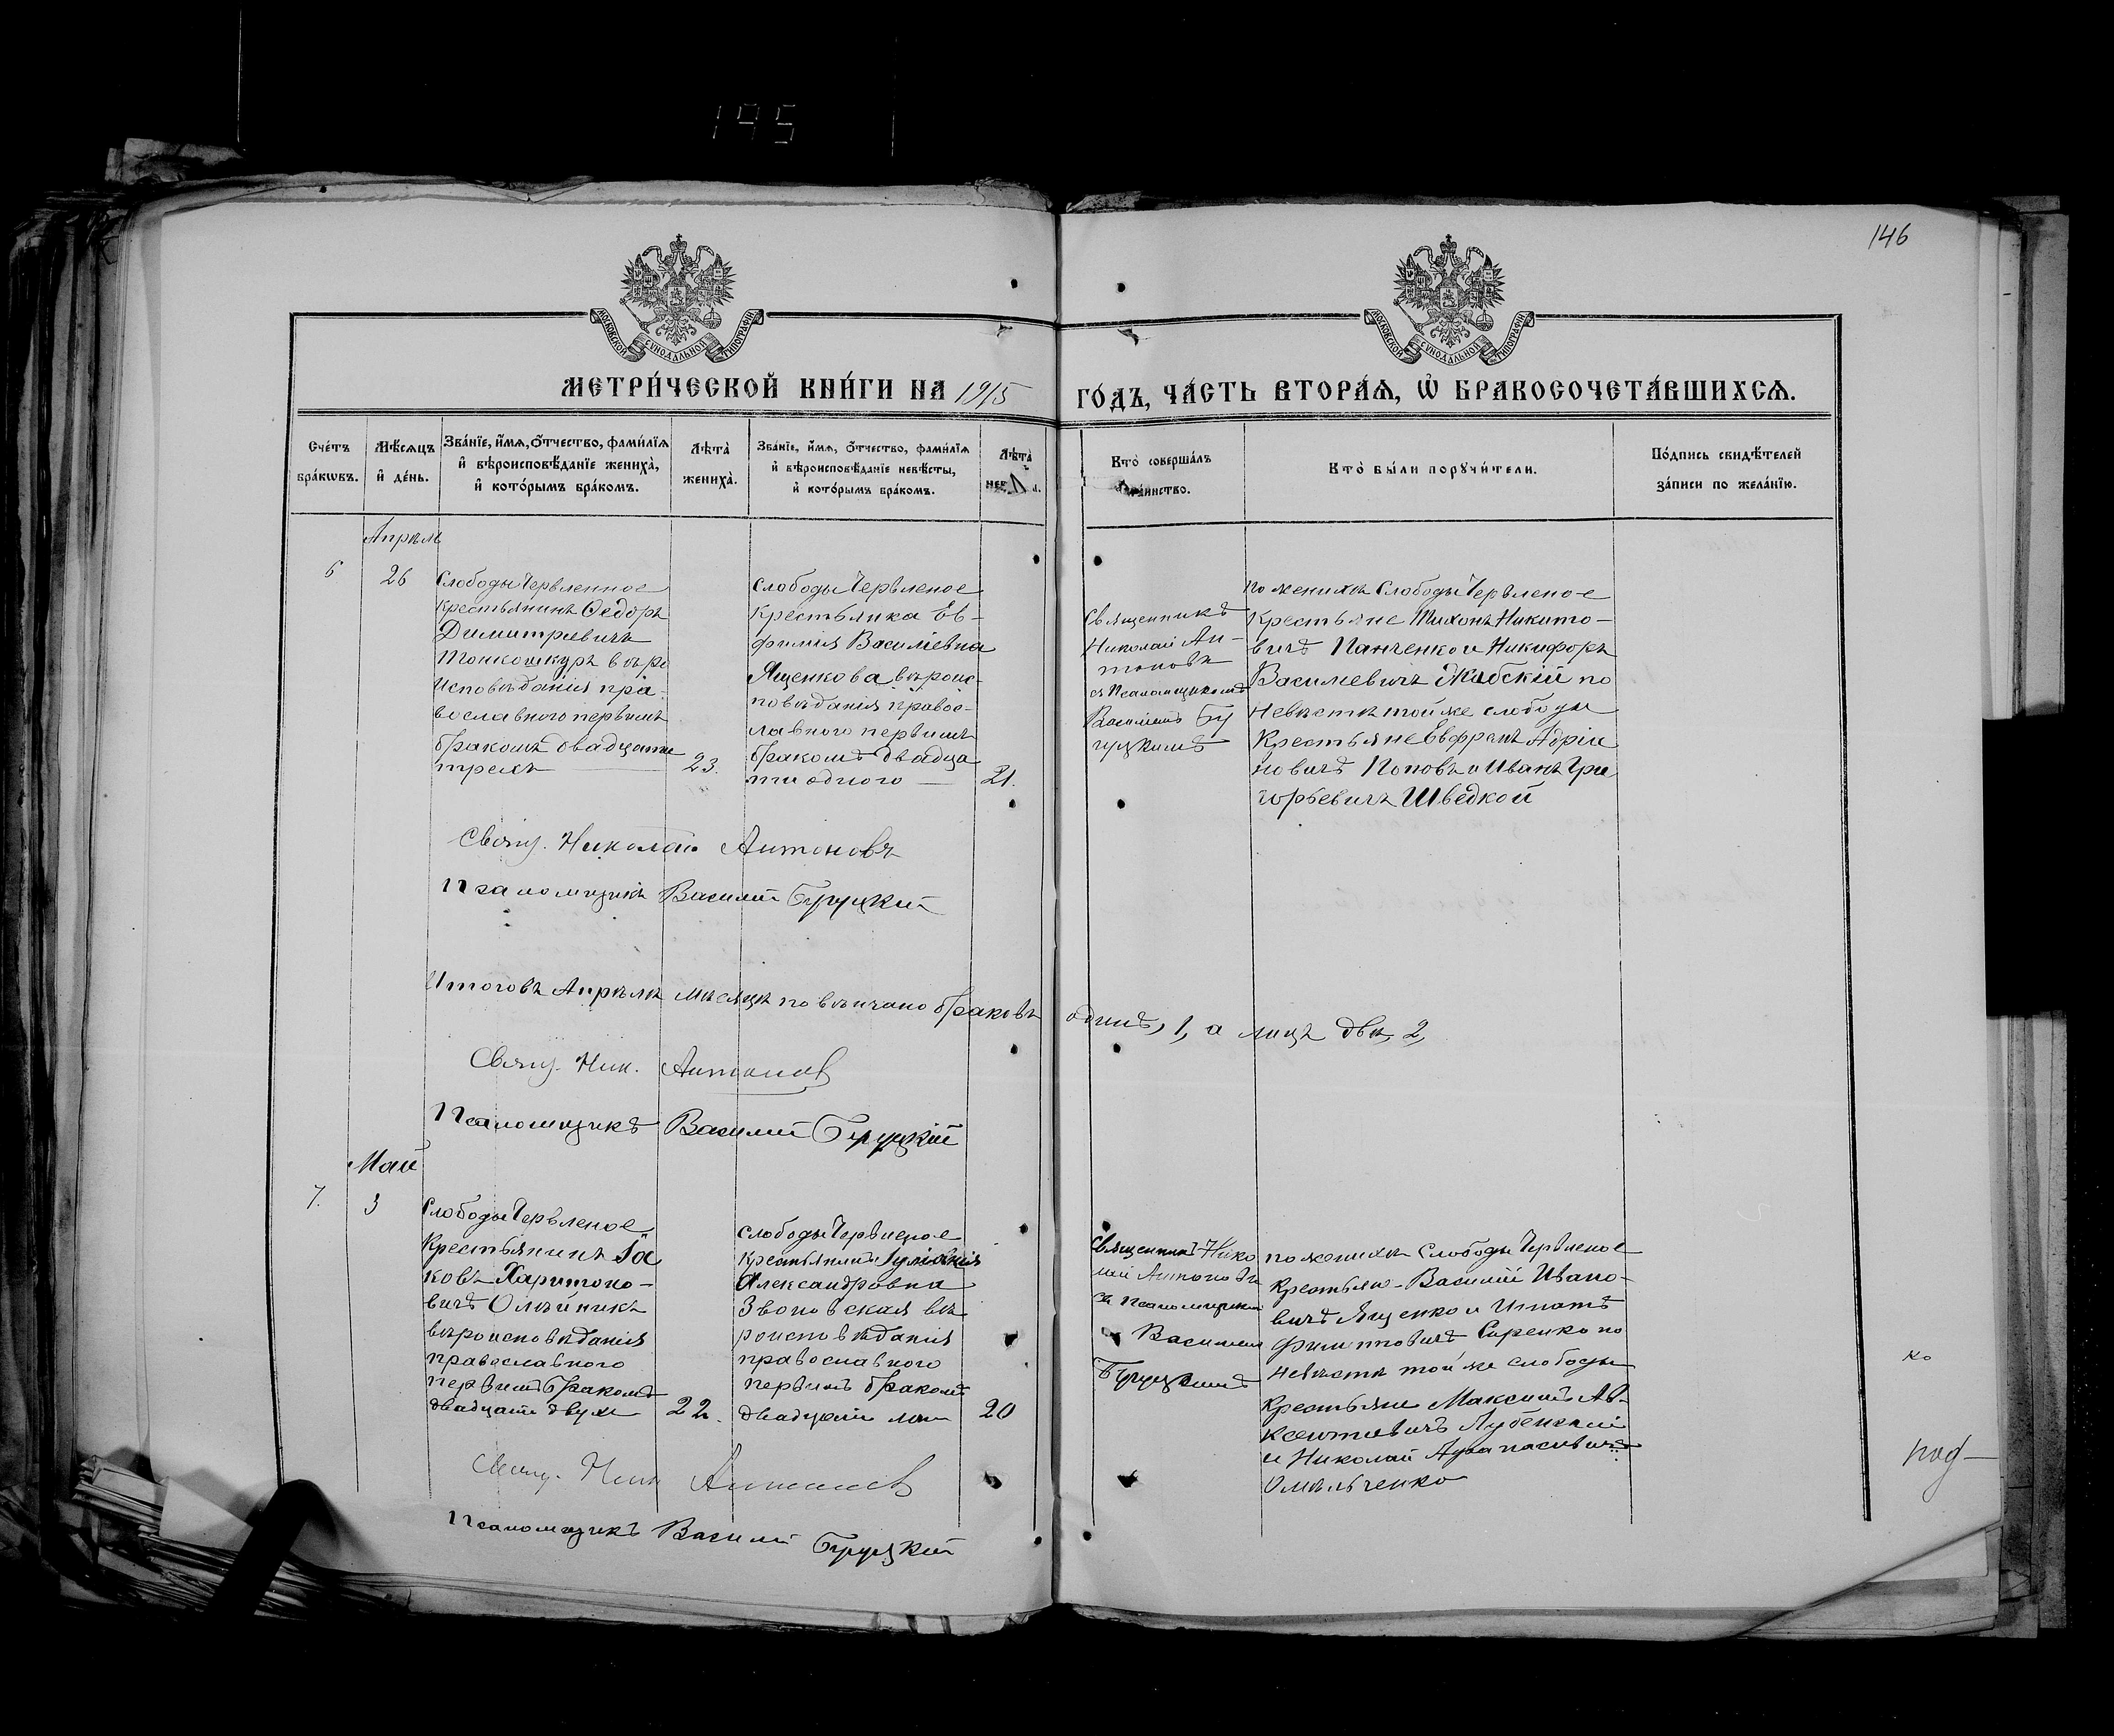 195
146
МОСКОВСКОЙ СѴНОДАЛЬНОЙ ТИПОГРАФІИ
МОСКОВСКОЙ СѴНОДАЛЬНОЙ ТИПОГРАФІИ
МЕТРИ́ЧЕСКОЙ КНИ́ГИ НА 1915 ГО́ДЪ, ЧА́СТЬ ВТОРА́Ѧ, Ѽ БРАКОСОЧЕТА́ВШИХСѦ.
Сче́тъ
бра́кѡвъ.
Мѣ́сѧцъ
и҆ де́нь.
Зва́нїе, и҆́мѧ, ѻ҆́тчество, фами́лїѧ
и҆ вѣроисповѣ́данїе жениха̀,
и҆ кото́рымъ бра́комъ.
Лѣта̀
жениха̀.
Зва́нїе, и҆́мѧ, ѻ҆́тчество, фами́лїѧ
и҆ вѣроисповѣ́данїе невѣ́сты,
и҆ кото́рымъ бра́комъ.
Лѣта̀
Кто̀ соверша́лъ
та́инство.
Кто̀ бы́ли порꙋчи́тели.
По́дпись свидѣ́телей
за́писи по жела́нїю.
Апрѣль
6
26
Слободы Червленное
крестьянинъ Ѳедоръ
Димитріевичъ
Тонкошкуръ вѣро
исповѣданія пра-
вославного первымъ
бракомъ двадцати
трехъ
23.
Слободы Червленое
Крестьянка Ев-
фимія Василіевна
Ященкова вѣроис-
повѣданія правос-
лавного первымъ
бракомъ двадца
ти одного
21.
Священникъ
Николай Ан-
тоновъ
съ Псаломщикомъ
Василіемъ Бу
руцкимъ
по женихѣ Слободы Червленое
Крестьяне Тихонъ Никито-
вичъ Панченко и Никифоръ
Василиевичъ Жабскій по
Невѣстѣ той же слободы
Крестьяне Евфремъ Адріа
новичъ Поповъ и Иванъ Гри
горьевичъ Шведкой
Свящ. Николай Антоновъ
Псаломщикъ Василий Буруцкий
Итоговъ Апрѣлѣ мѣсяцѣ повѣнчано браковъ одинъ, 1, а лицъ два, 2,
Свящ. Ник. Антонов
Псаломщикъ Василий Буруцкій
Май
7.
3
Слободы Червленое
Крестьянинъ Іа
ковъ Харитоно-
вичъ Олѣйникъ
вѣроисповѣданія
православного
первымъ бракомъ
двадцати двухъ
22.
слободы Червленое
Александровна
Звоновская вѣ
роисповѣданія
православного
первымъ бракомъ
двадцати лѣт
20
Священникъ Нико
лай Антоновъ
съ Псаломщикомъ
Василием
Буруцкимъ
по женихѣ Слободы Червленое
Крестьяне Василій Ивано-
вичъ Ященко и Игнатъ
Филипповичъ Сиренко по
Невѣстѣ той же слободы
Крестьяне Максимъ Ав-
ксентиевичъ Лубенский
и Николай Афанасиевичъ
Омѣльченко
ко
под-
Свящ. Ник Антонов
Псаломщикъ Василий Буруцкий